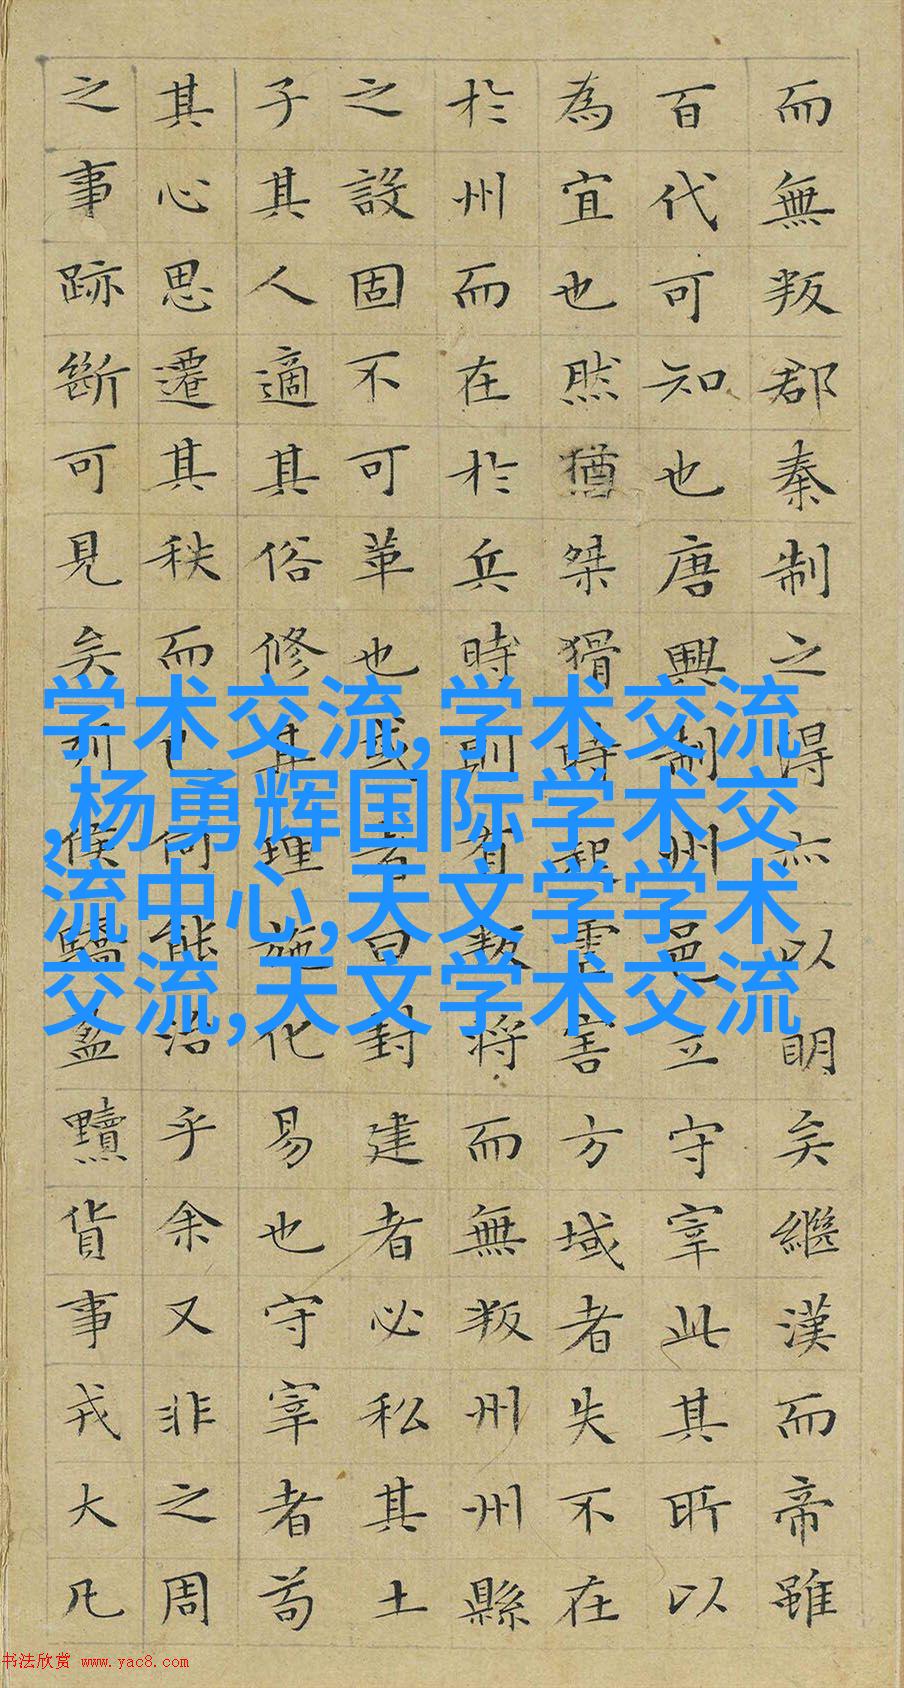 而無叛郡秦制之得亦以明矣繼漢而帝雖
百代可知也唐興制州邑立守宰此其所以
為宜也然猶桀猾時起虐害方域者失不在
於州而在於兵時則有叛將而無叛州州縣
之設固不可革也或者曰封建者必私其土
子其人適其俗修其理施化易也守宰者苟
其心思遷其秩而已何能治乎余又非之周
之事跡斷可見矣列侯驕盈黷貨事戎大凡
学术交流,学术交流
,杨勇辉国际学术交
流中心,天文学学术
交流,天文学术交流
书法欣赏 www.yac8.com